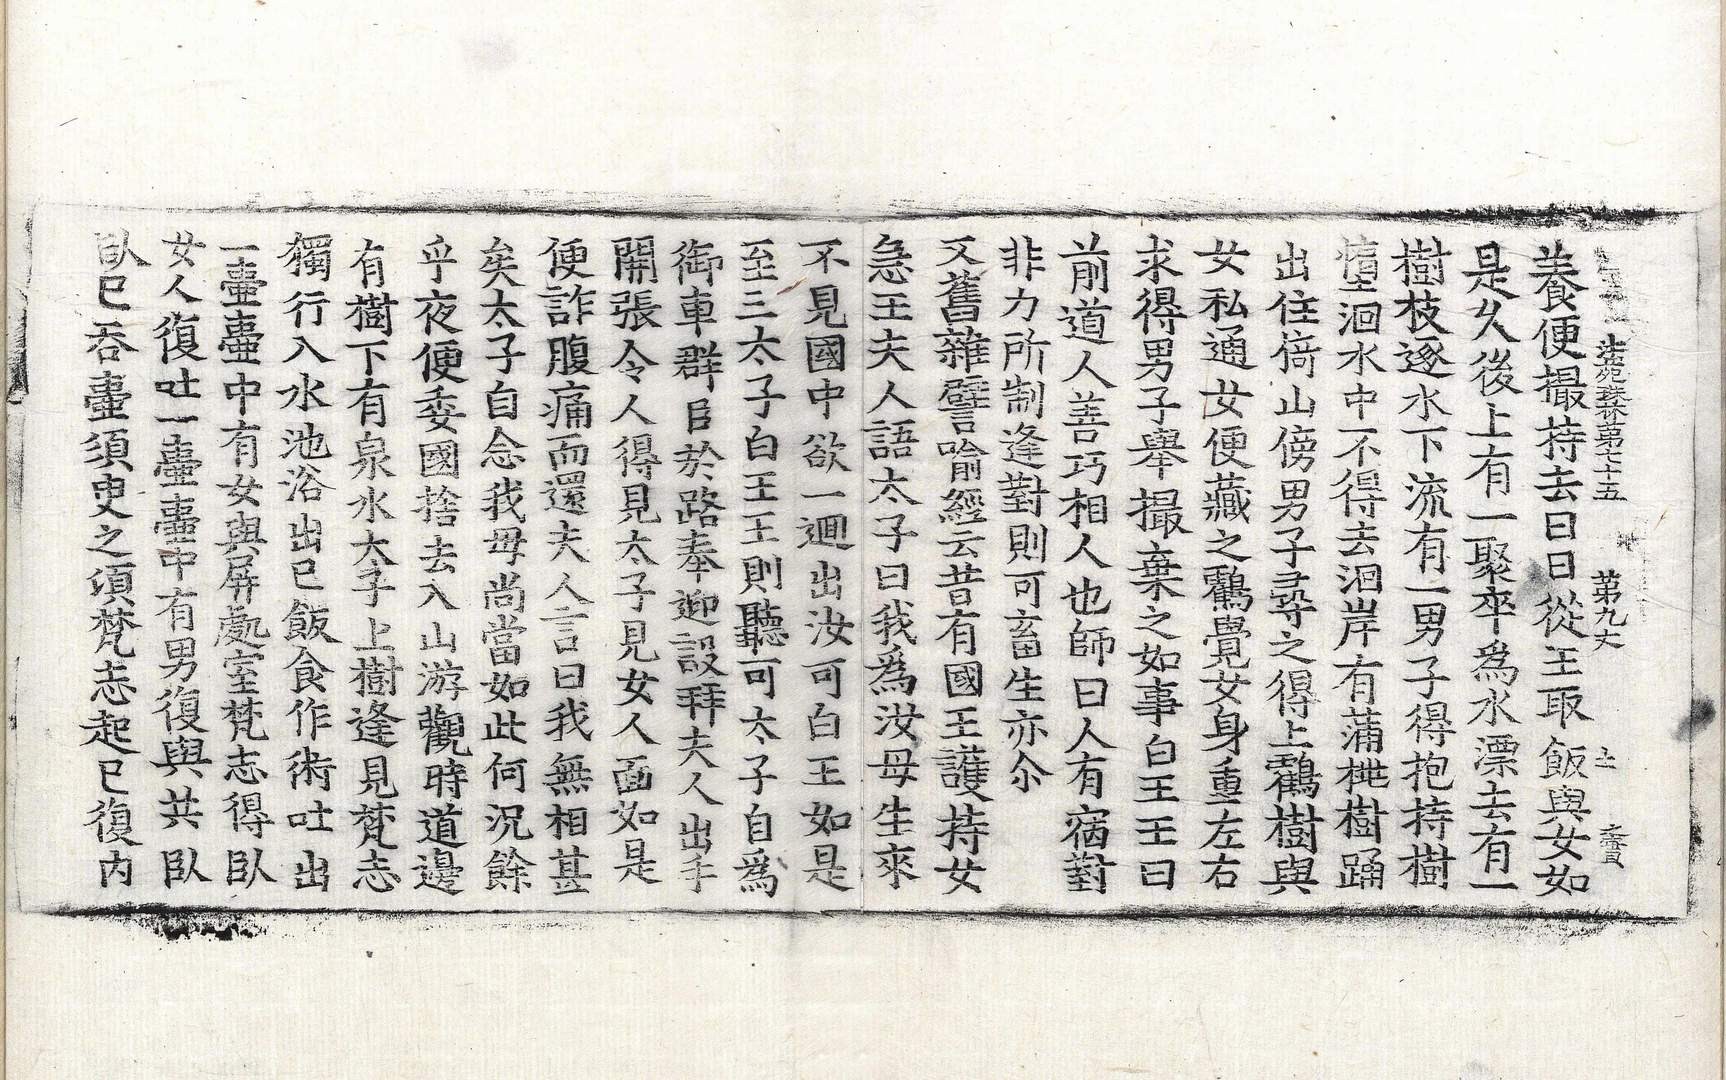 法苑珠林第七十五 第九丈
養便撮持去日日從王取飯與女如
是久後上有一聚卒為水漂去有一
樹枝逐水下流有一男子得抱持樹
墮洄水中不得去洄岸有蒲桃樹踊
出住倚山傍男子尋之得上鸛樹與
女私通女便藏之鸛覺女身重左右
求得男子舉撮棄之如事白王王曰
前道人善巧相人也師曰人有宿對
非力所制逢對則可畜生亦尒
又舊雜譬喻經云昔有國王護持女
急王夫人語太子曰我為汝母生來
不見國中欲一迴出汝可白王如是
至三太子白王王則聽可太子自為
御車群臣於路奉迎設拜夫人出手
開張令人得見太子見女人面如是
便詐腹痛而還夫人言曰我無相甚
矣太子自念我母尚當如此何況餘
乎夜便委國捨去入山游觀時道邊
有樹下有泉水太子上樹逢見梵志
獨行入水池浴出已飯食作術吐出
一壺壺中有女與屏處室梵志得臥
女人復吐一壺壺中有男復與共臥
臥已吞壺須臾之須梵志起已復內